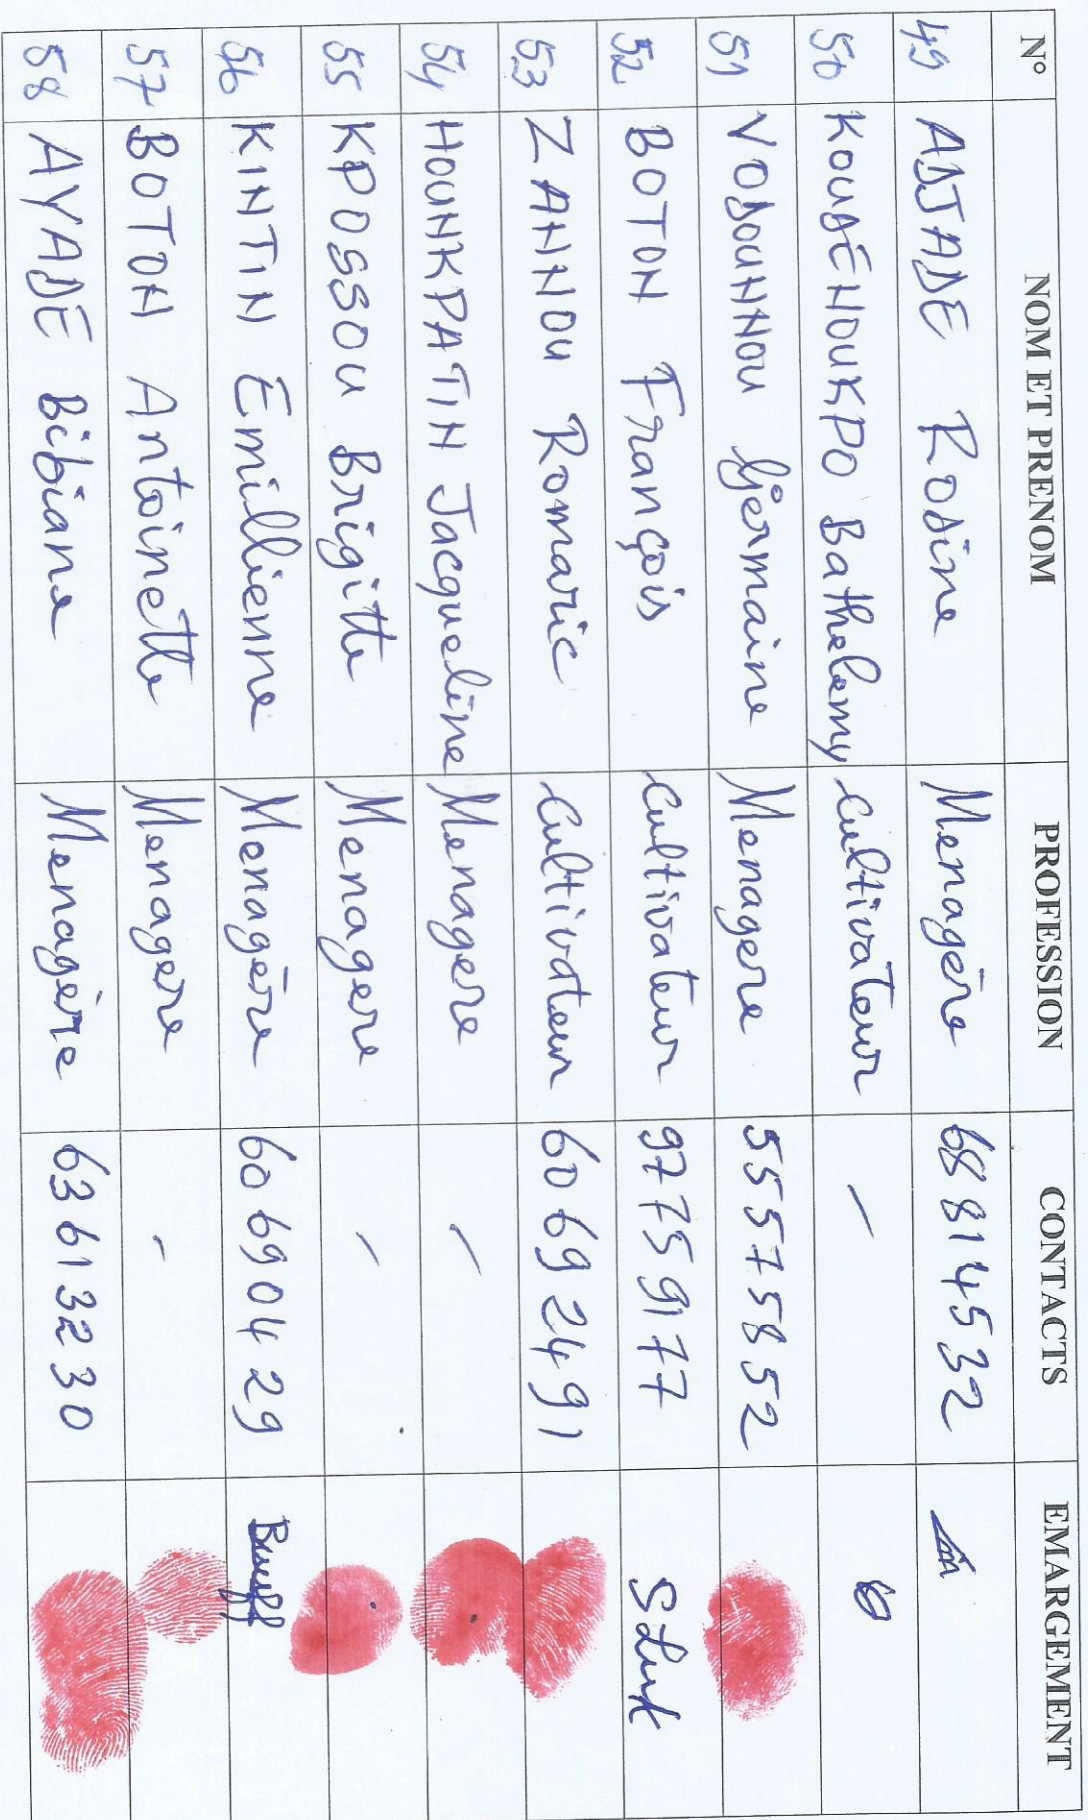 N° NOM ET PRENOM PROFESSION CONTACTS EMARGEMENT
49 ADJADE Rosine Menagère 68814532
50 KOUDÉNOUKPO Bathelemy Cultivateur -
51 VODOUNNOU Germaine Menagere 55575852
52 BOTON François Cultivateur 97759177
53 ZANNOU Romaric Cultivateur 60692491
54 HOUNKPATIN Jacqueline Menagere -
55 KPOSSOU Brigitte Menagere -
56 KINTIN Emillienne Menagère 60690429
57 BOTON Antoinette Menagère -
58 AYADÉ Bibiane Menagère 63613230